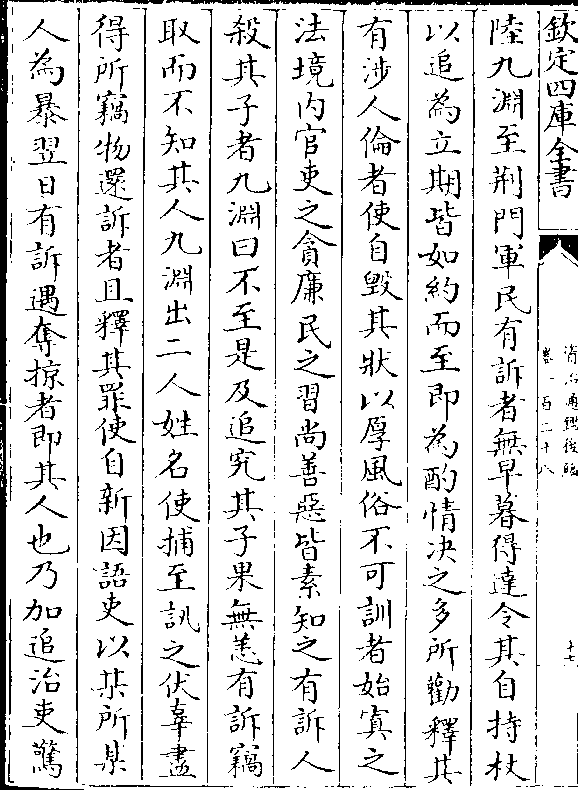 欽定四庫全書
資治通鑑後編
卷一百二十八
十七
陸九淵至荆門軍民有訴者無早暮得達令其自持杖
以追為立期皆如約而至即為酌情决之多所勸釋其
有涉人倫者使自毀其狀以厚風俗不可訓者始寘之
法境内官吏之貪廉民之習尚善惡皆素知之有訴人
殺其子者九淵曰不至是及追究其子果無恙有訴竊
取而不知其人九淵出二人姓名使捕至訊之伏辜盡
得所竊物還訴者且釋其罪使自新因語吏以某所某
人為暴翌日有訴遇奪掠者即其人也乃加追治吏驚